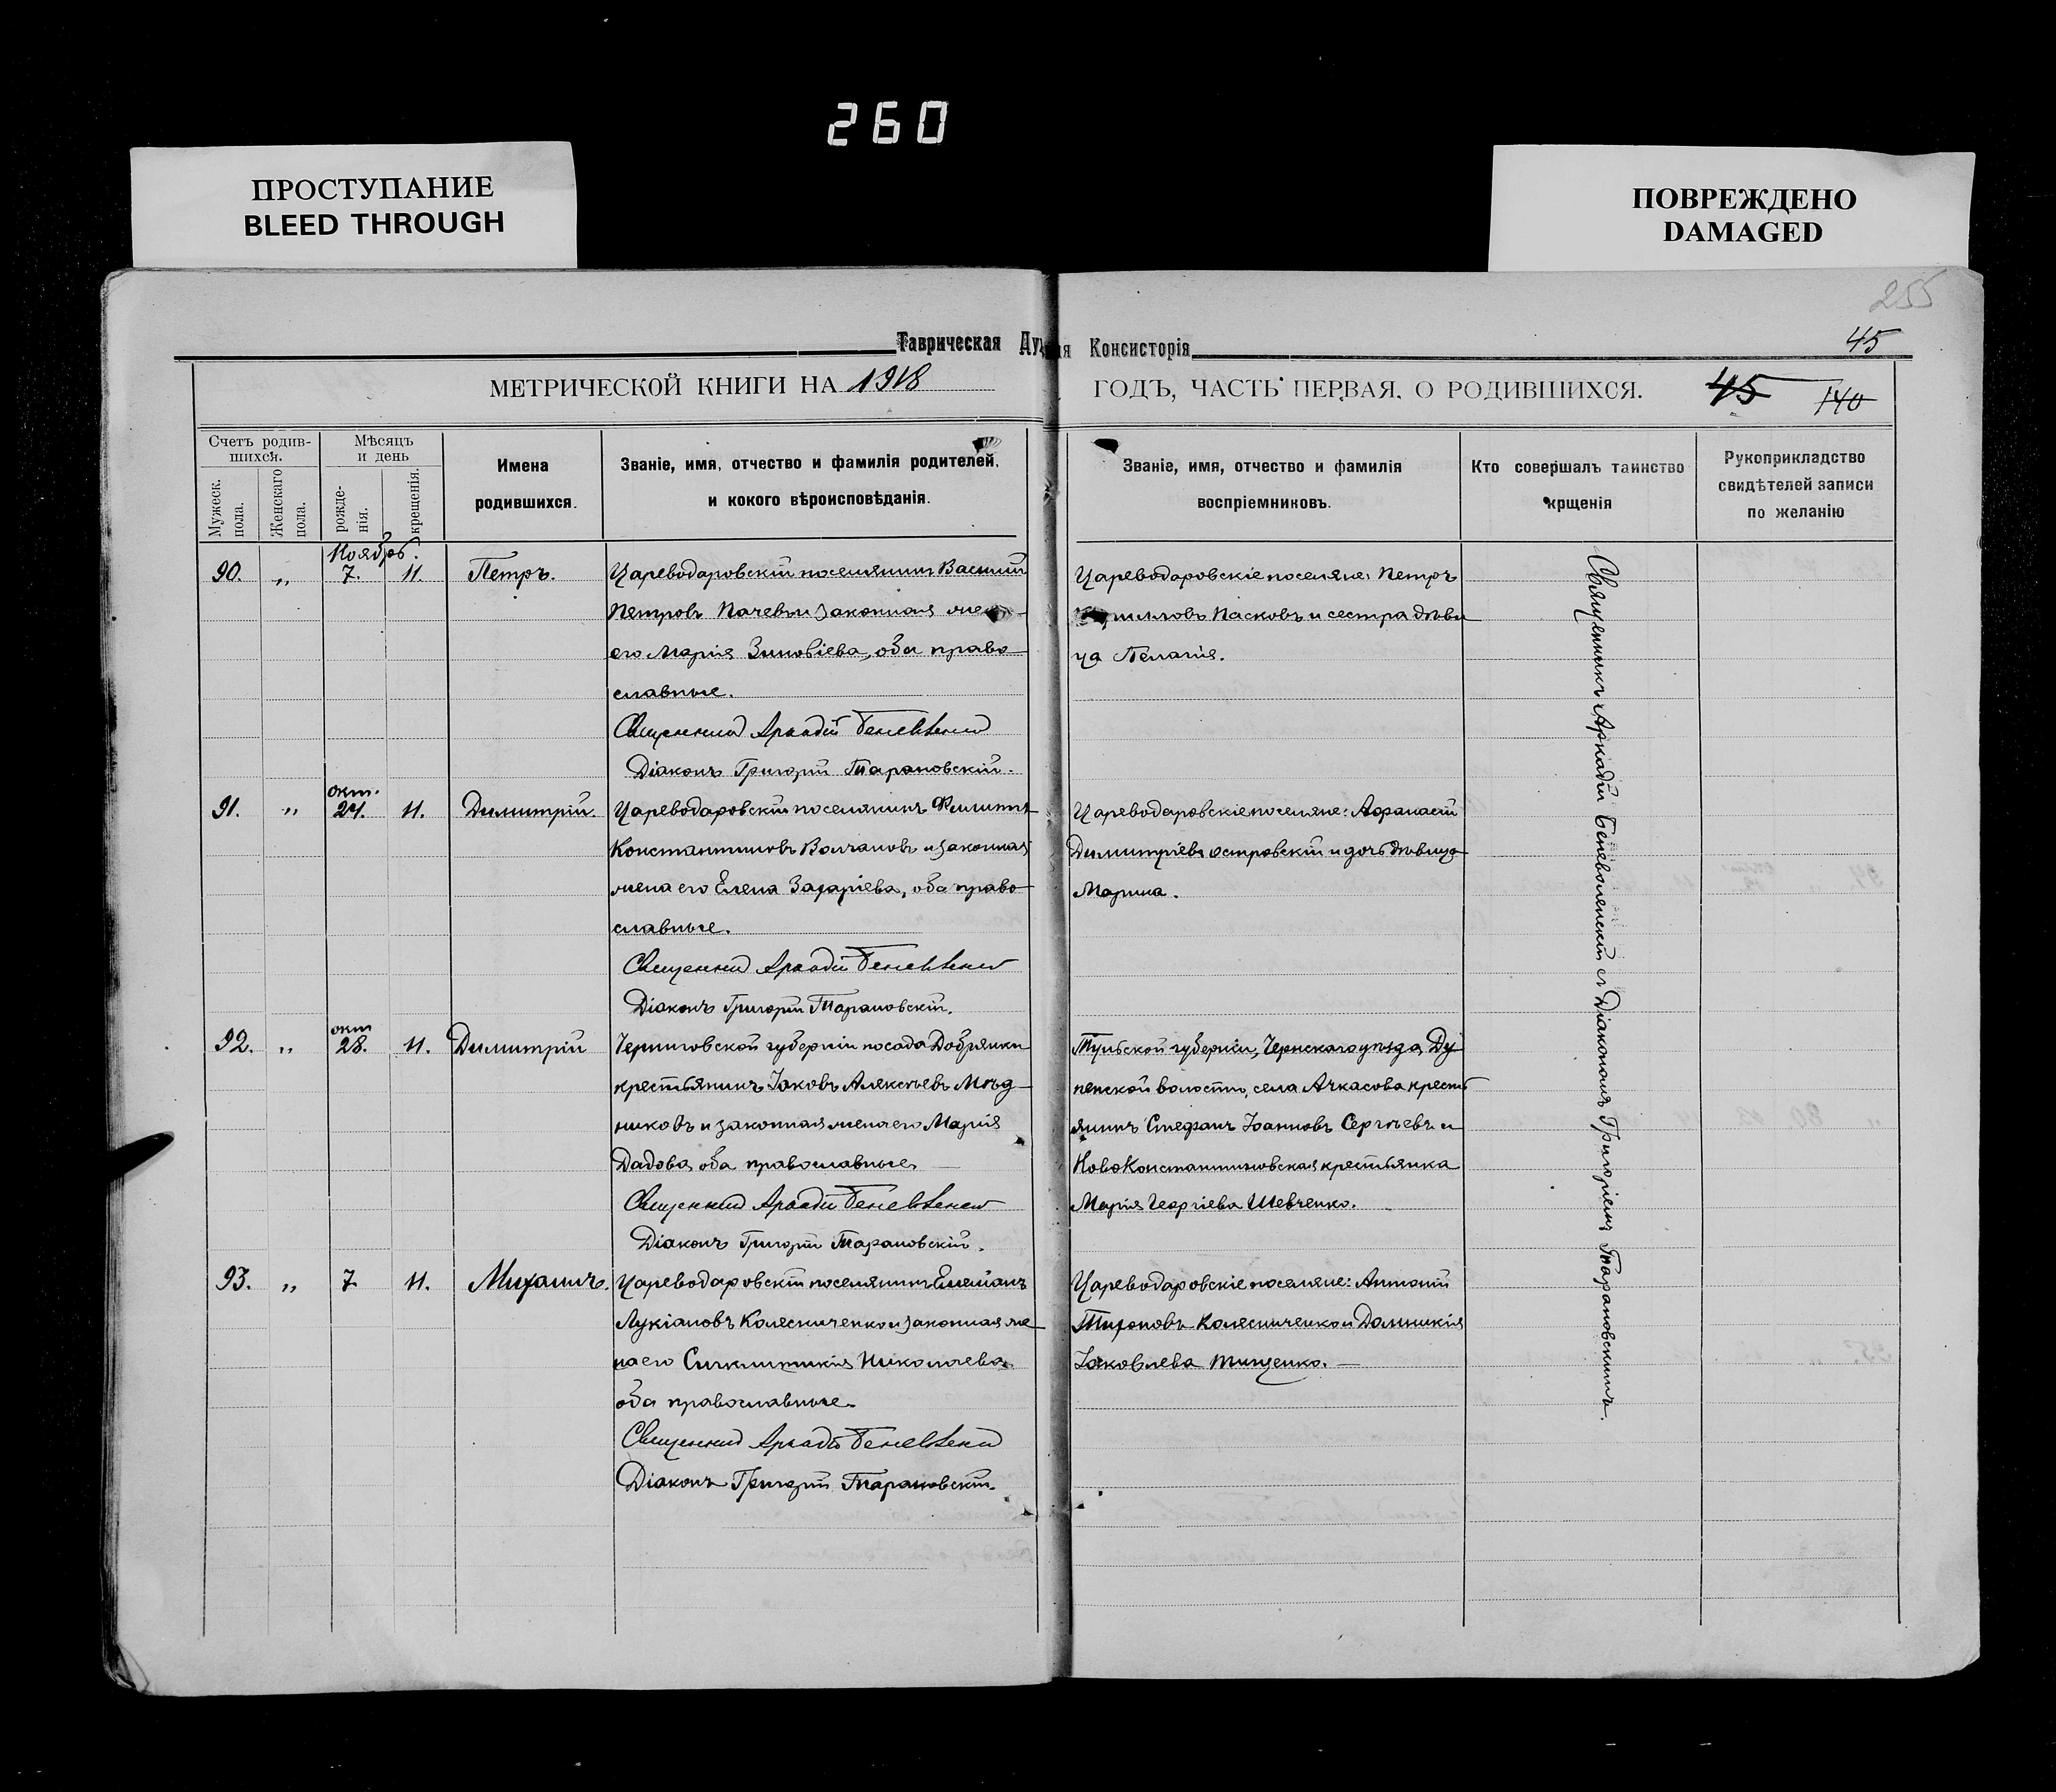 260
ПРОСТУПАНИЕ
BLEED THROUGH
ПОВРЕЖДЕНО
DAMAGED
255
Таврическая Ду ая Консисторія
45
МЕТРИЧЕСКОЙ КНИГИ НА 1918 ГОДЪ, ЧАСТЬ ПЕРВАЯ, О РОДИВШИХСЯ.
45 140
Счетъ родив-
шихся.
Мужеск.
пола.
Женскаго
пола.
Мѣсяцъ
и день
рожде-
нія.
крещенія.
Имена
родившихся.
Званіе, имя, отчество и фамилія родителей,
и кокого вѣроисповѣданія.
Званіе, имя, отчество и фамилія
воспріемниковъ.
Кто совершалъ таинство
крщенія
Рукоприкладство
свидѣтелей записи
по желанію
Ноябрь.
90. „ 7. 11. Петръ.
Цареводаровскій поселянинъ Василій
Петровъ Пачевъ и законная жена
его Марія Зиновіева, оба право
славные.
Священникъ Аркадій
Діаконъ Григорій Тарановскій.
Цареводаровскіе поселяне: Петръ
Пасковъ и сестра дѣви
ца Пелагія.
окт.
91. „ 24. 11. Димитрій.
Цареводаровскій поселянинъ Филиппъ
Константиновъ Волчановъ и законная
жена его Елена Захаріева, оба право
славные.
Священникъ Аркадій
Діаконъ Григорій Тарановскій.
Цареводаровскіе поселяне: Афанасій
Димитріевъ Островскій и дочь дѣвица
Марина.
окт
92. „ 28. 11. Димитрій
Черниговской губерніи посада Добрянки
крестьянинъ Іаковъ Алексѣевъ Мѣд
никовъ и законная жена его Марія
Дадова, оба православные.
Священникъ Аркадій
Діаконъ Григорій Тарановскій.
Тульской губерніи, Чернскаго уѣзда, Ду
пенской волости, села Ачкасова крестъ
янинъ Стефанъ Іоанновъ Сергѣевъ и
НовоКонстантиновская крестьянка
Марія Георгіева Шевченко.
93. „ 7 11. Михаилъ.
Цареводаровскій поселянинъ Емеліанъ
Лукіановъ Колесниченко и законная же
на его Сигклитикія Николаева,
оба православные.
Священникъ Аркадій
Діаконъ Григорій Тарановскій.
Цареводаровскіе поселяне: Антоній
Тихоновъ Колесниченко и Домникія
Іаковлева Тищенко.
Священникъ Аркадій Беневоленскій съ Діакономъ Григоріемъ Тарановскимъ.